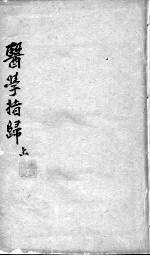 醫學指歸上